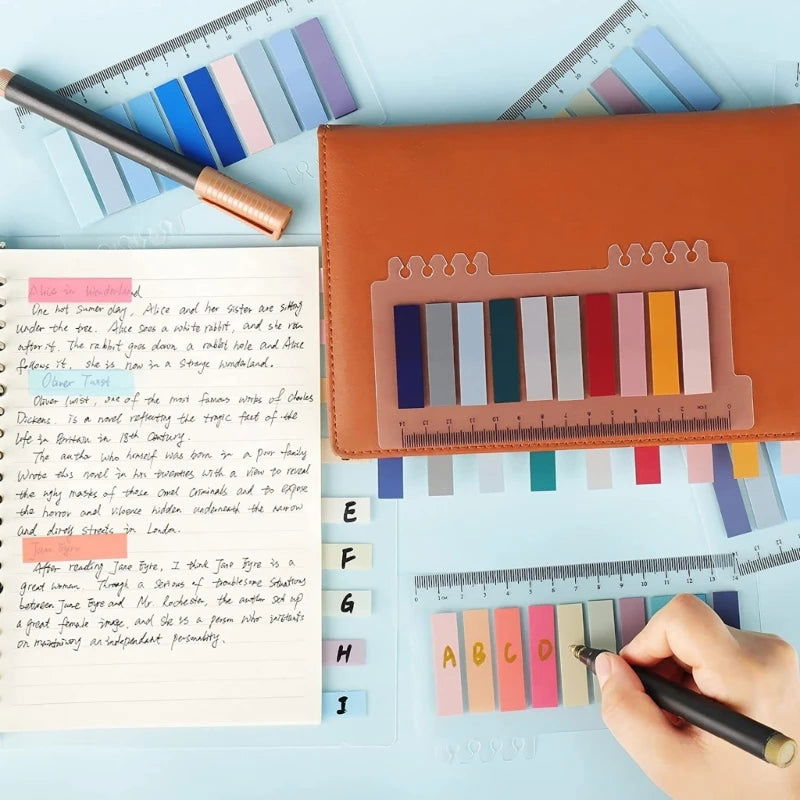 Alice in Wonderland
One hot sumer day, Alice and her sister are sitting
under the tree. Alice sees a white rabbit, and she run
after it. The rabbit goes down a rabbit hole and Alice
follows it, she is now in a strage wonderland.
Oliver Twist
Oliver Twist, one of the most famous works of Charles
Dickens. is a novel reflecting the tragic fact of the
life in Britain in 18th Century.
The author who himself was born in a poor family
Wrote this novel in his twenties with a view to reveal
the ugly masks of those cruel criminals and to expose
the horror and vilence hidden underneath the narrow
and dirty streets in London.
Jane Eyre
After reading Jane Eyre, I think Jane Eyre is a
great woman. Through a series of troublesome situations
between Jane Eyre and Mr. Rochester, the author set up
a great female image, and she is a person who insistents
on maintaining an independant personality.
E
F
G
H
I
A B C D